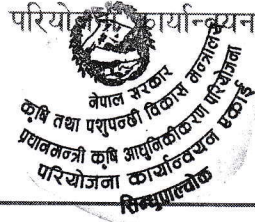 परियोजना कार्यान्वयन
नेपाल सरकार
कृषि तथा पशुपन्छी विकास मन्त्रालय
प्रधानमन्त्री कृषि आधुनिकीकरण परियोजना
परियोजना कार्यान्वयन एकाई
सिन्धुपाल्चोक